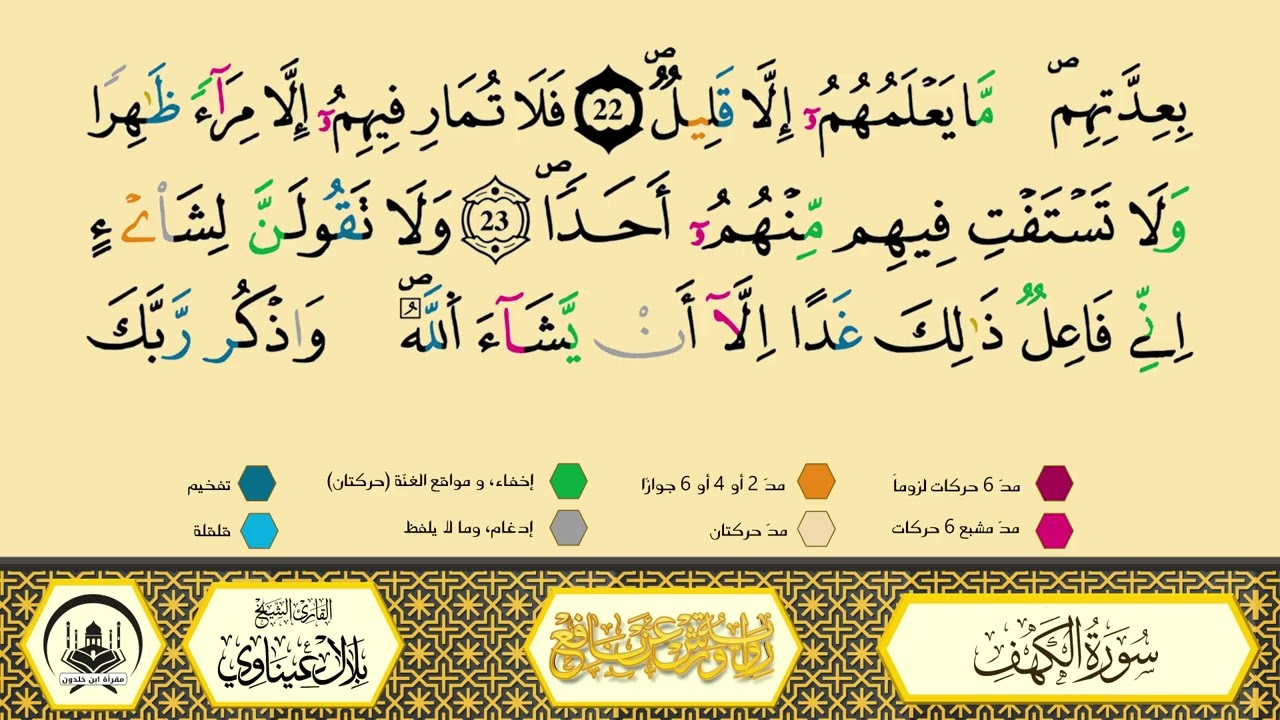 بِعِدَّتِهِمۖ مَّا يَعْلَمُهُمُۥٓ إِلَّا قَلِيلٞۖ 22 فَلَا تُمَارِ فِيهِمُۥٓ إِلَّا مِرَآءٗ ظَٰهِرٗا
وَلَا تَسْتَفْتِ فِيهِم مِّنْهُمُۥٓ أَحَدٗاۖ 23 وَلَا تَقُولَنَّ لِشَاْيْءٍ
اِنِّي فَاعِلٞ ذَٰلِكَ غَدًا اِلَّآ أَنْ يَّشَآءَ اَللَّهُۖ وَاذْكُر رَّبَّكَ
مدّ 6 حركات لزوماً مدّ 2 أو 4 أو 6 جوازًا إخفاء، و مواقع الغنّة (حركتان) تفخيم
مدّ مشبع 6 حركات مدّ حركتان إدغام، وما لا يلفظ قلقلة
سُورَةُ الكَهْفِ
رواية ورش عن نافع
القارئ الشيخ
بلال عيناوي
مقرأة ابن خلدون